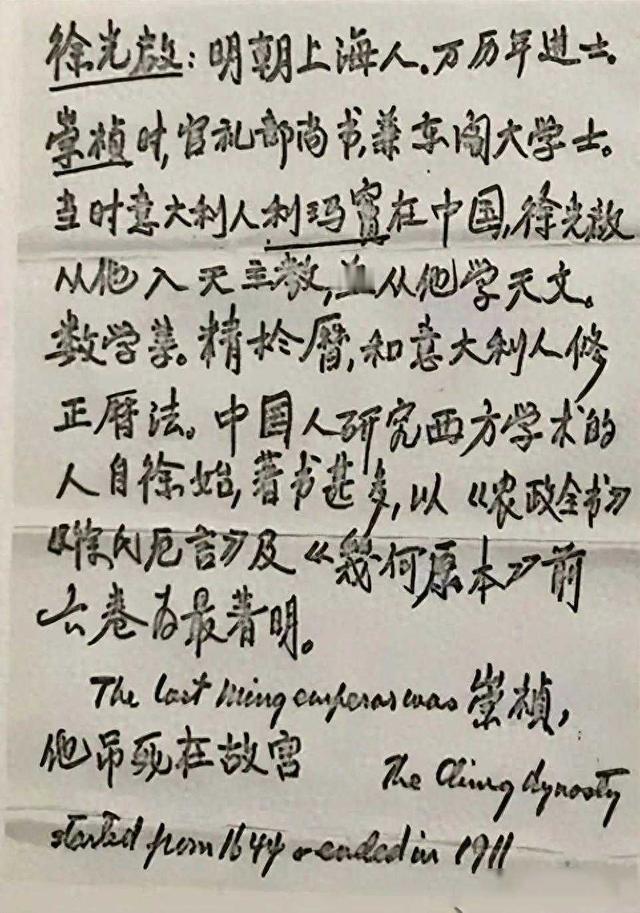 徐光啟：明朝上海人。万历年进士。
崇禎时，官礼部尚书，兼东阁大学士。
当时意大利人利玛窦在中国，徐光啟
从他入天主教，並从他学天文。
数学等。精於曆，和意大利人修
正曆法。中国人研究西方学术的
人自徐始，著书甚多，以《农政全书》
《徐氏卮言》及《幾何原本》前
六卷为最著明。
The last Ming emperor was 崇禎，
他吊死在故宫
The Ching dynasty
started from 1644 & ended in 1911